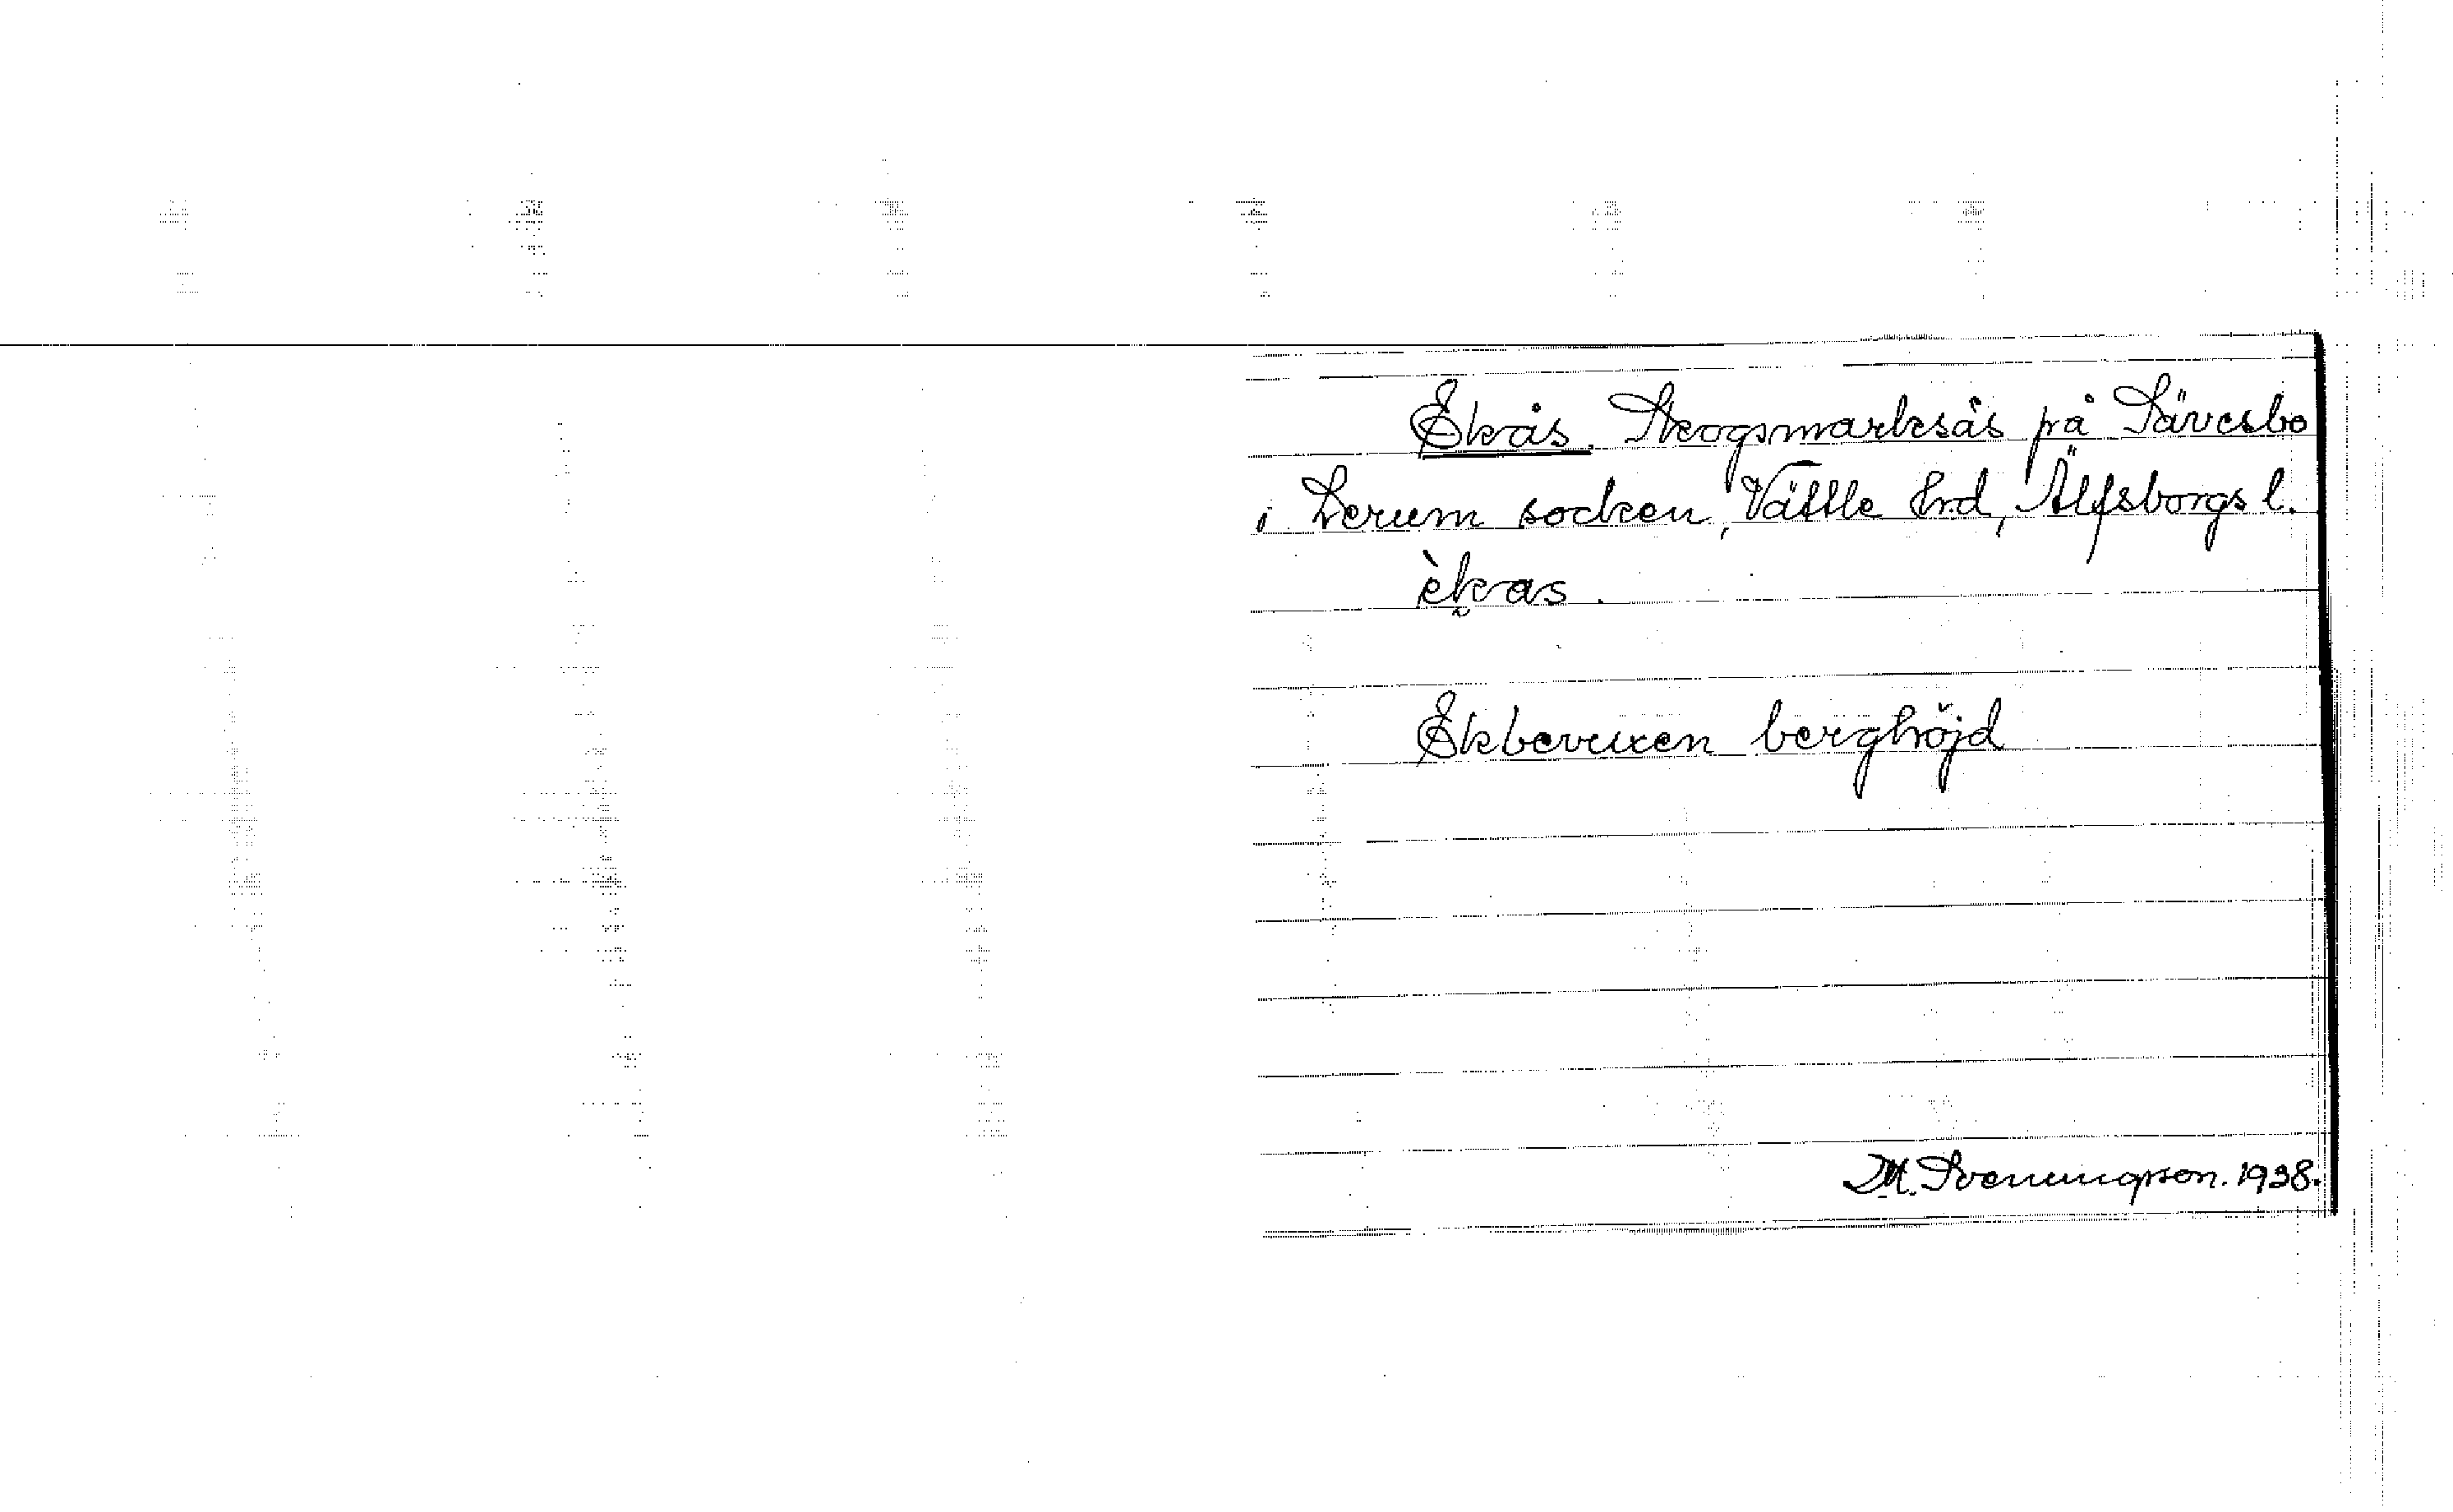 Ekås. Skogsmarksås på Sävesbo
i Lerum socken, Vättle hrd, Älfsborgs l.
èk̰as.
Ekbevuxen berghöjd
M. Svenungsson. 1938.